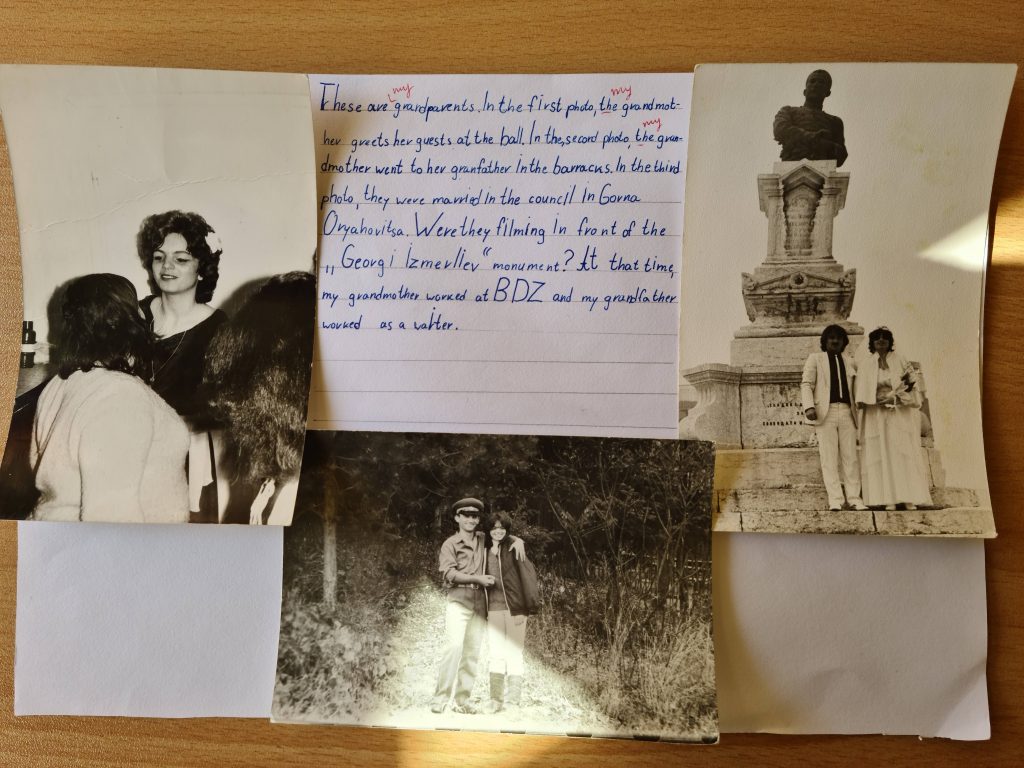 my my
These are grandparents. In the first photo, the grandmot-
her greets her guests at the ball. In the, second photo, the gran-
my
dmother went to her granfather in the barracus. In the third
photo, they were married in the council in Gorna
Oryahovitsa. Were they filming in front of the
„Georgi Izmerliev“ monument? At that time,
my grandmother worked at BDZ and my grandfather
worked as a waiter.